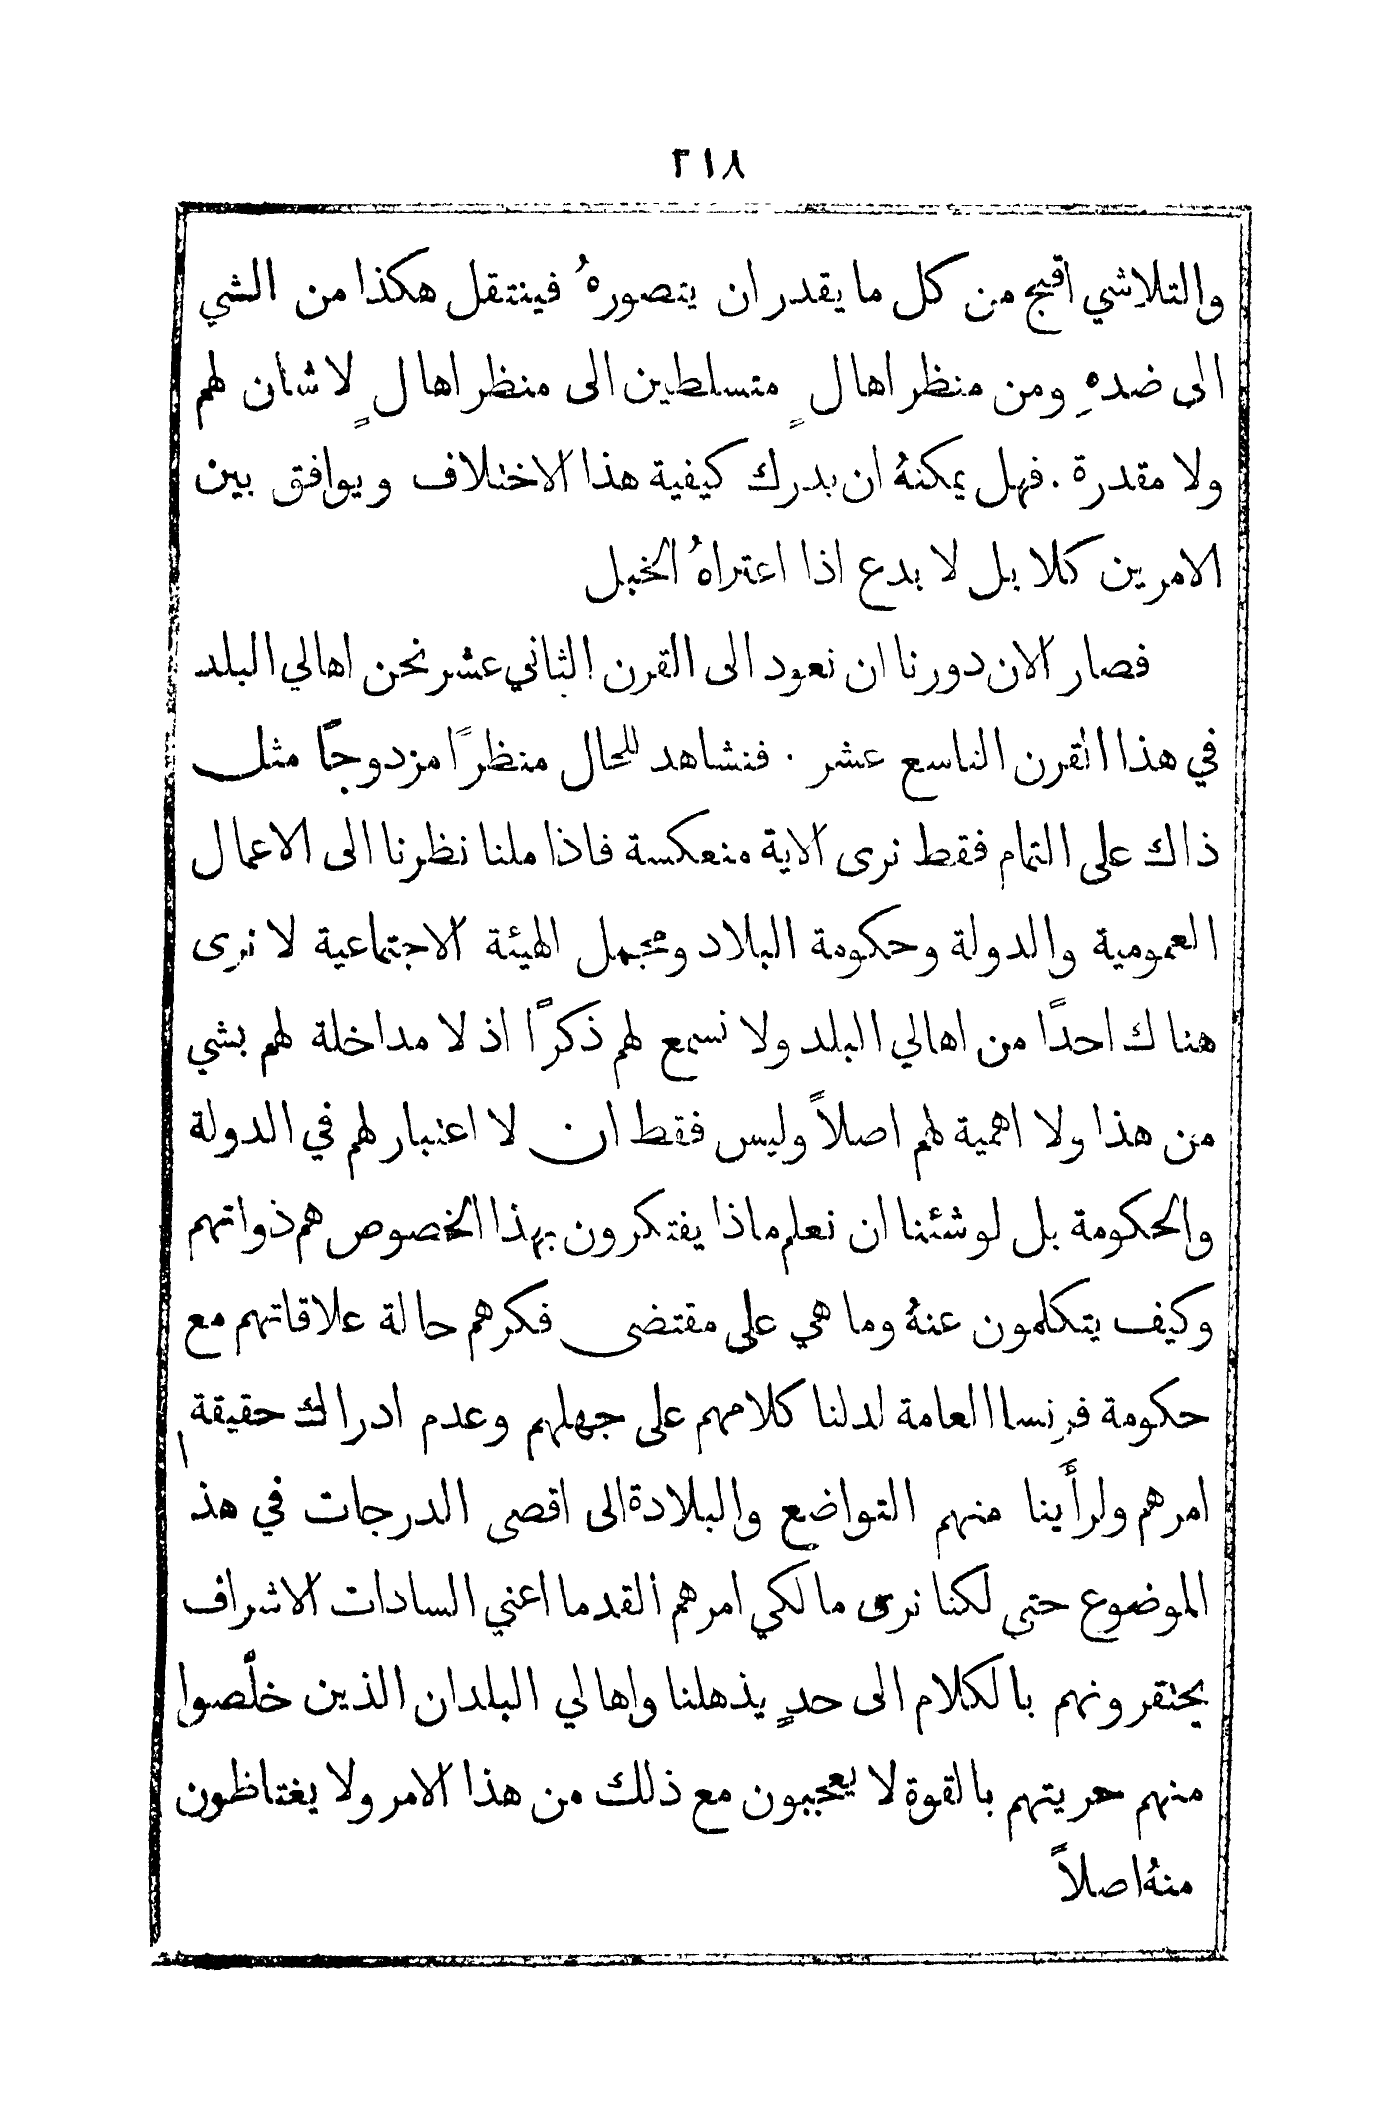 ٢١٨
والتلاشي اقبح من كل ما يقدر ان يتصورهُ فينتقل هكذا من الشي
الى ضدهِ ومن منظر اهالٍ متسلطين الى منظر اهالٍ لا شان لهم
ولا مقدرة . فهل يمكنهُ ان يدرك كيفية هذا الاختلاف ويوافق بين
الامرين كلا بل لا بدع اذا اعتراهُ الخبل
فصار الان دورنا ان نعود الى القرن الثاني عشر نحن اهالي البلد
في هذا القرن التاسع عشر . فنشاهد للحال منظرًا مزدوجًا مثل
ذاك على التمام فقط نرى الاية منعكسة فاذا ملنا نظرنا الى الاعمال
العمومية والدولة وحكومة البلاد ومجمل الهيئة الاجتماعية لا نرى
هناك احدًا من اهالي البلد ولا نسمع لهم ذكرًا اذ لا مداخلة لهم بشي
من هذا ولا اهمية لهم اصلاً وليس فقط ان لا اعتبار لهم في الدولة
والحكومة بل لو شئنا ان نعلم ماذا يفتكرون بهذا الخصوص هم ذواتهم
وكيف يتكلمون عنهُ وما هي على مقتضى فكرهم حالة علاقاتهم مع
حكومة فرنسا العامة لدلنا كلامهم على جهلهم وعدم ادراك حقيقة
امرهم ولرأينا منهم التواضع والبلادة الى اقصى الدرجات في هذا
الموضوع حتى لكنا نرى مالكي امرهم القدما اعني السادات الاشراف
يحتقرونهم بالكلام الى حدٍ يذهلنا واهالي البلدان الذين خلّصوا
منهم حريتهم بالقوة لا يعجبون مع ذلك من هذا الامر ولا يغتاظون
منهُ اصلاً